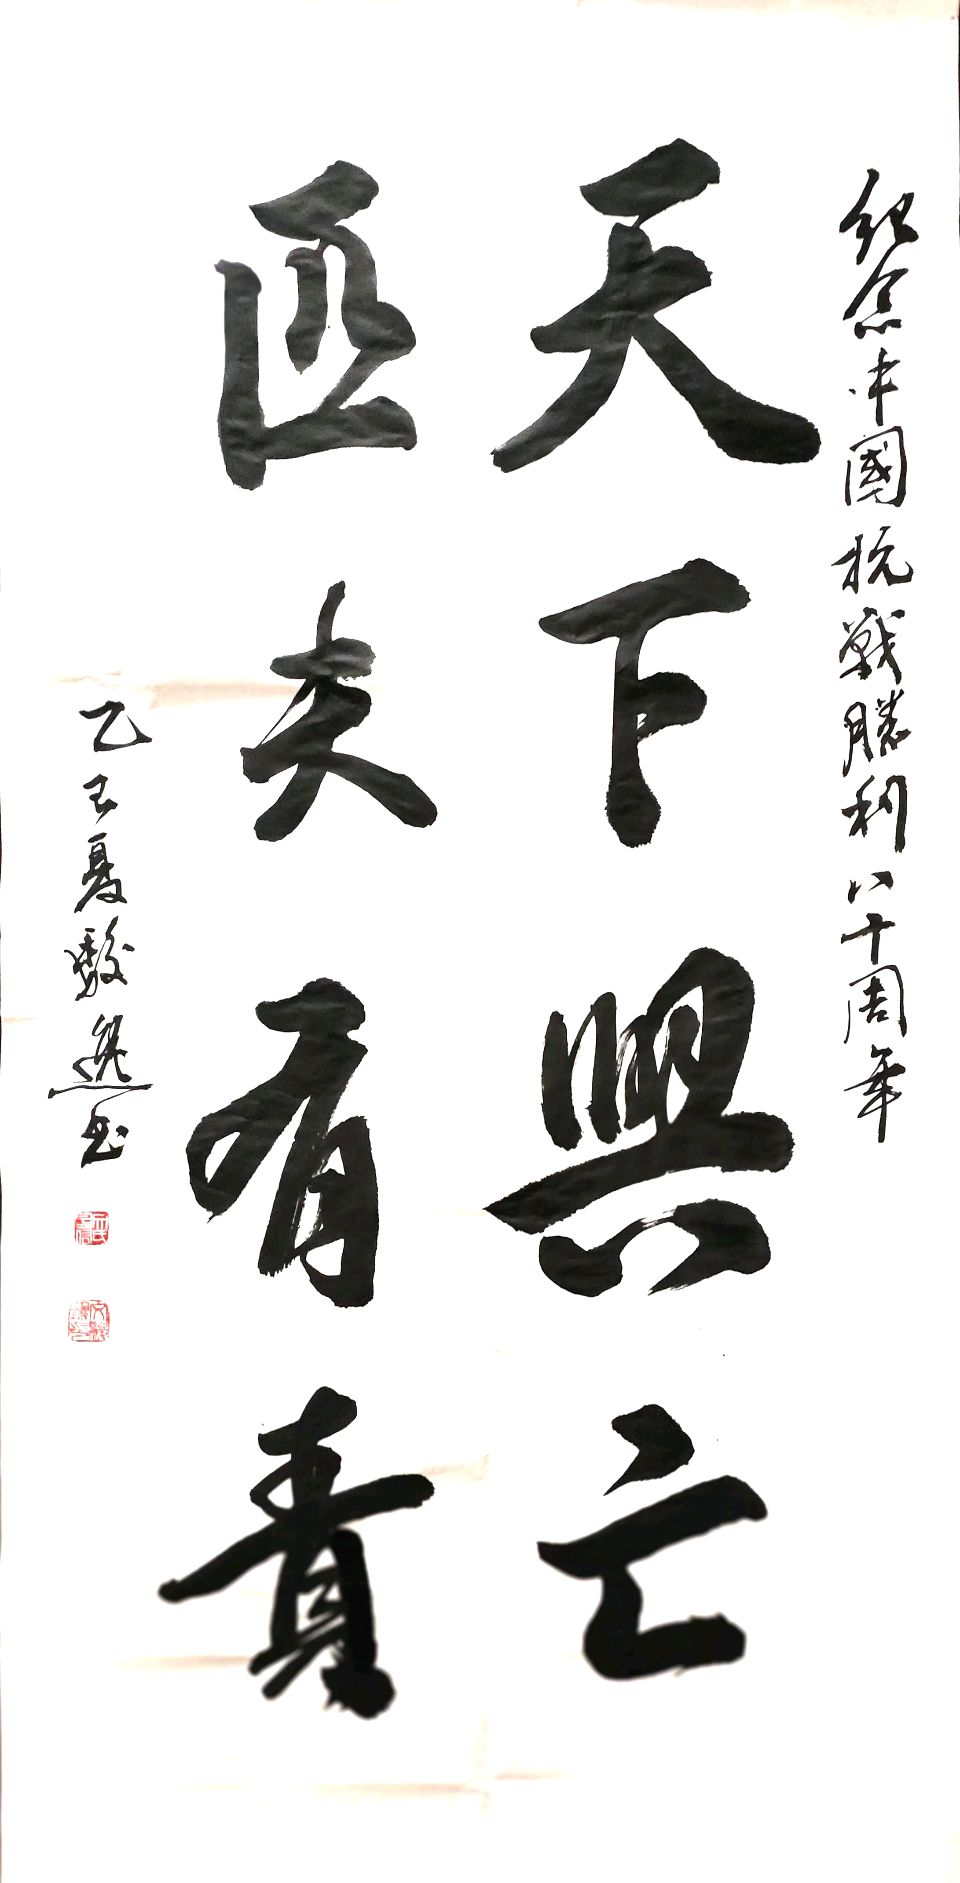 紀念中國抗戰勝利八十周年
天下興亡
匹夫有責
乙巳夏駿逸书